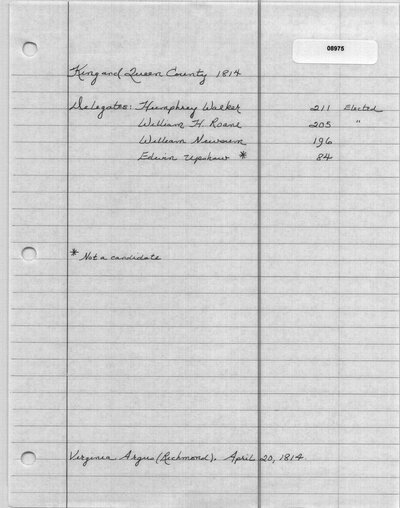 08975
King and Queen County 1814
Delegates: Humphrey Walker 211 Elected
William H. Roane 205 "
William Newsum 196
Edwin Upshaw * 84
* Not a candidate
Virginia Argus (Richmond). April 20, 1814.